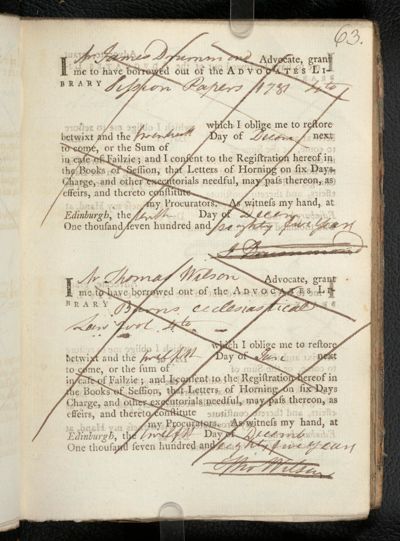 63.
I Mr James Drummond Advocate, grant
me to have borrowed out of the ADVOCATES LI-
BRARY Session Papers 1781 4to
which I oblige me to restore
betwixt and the Day of Decem next
to come, or the Sum of
in case of Failzie; and I consent to the Registration hereof in
the Books of Session, that Letters of Horning on six Days
Charge, and other executorials needful, may pass thereon, as
effeirs, and thereto constitute
my Procurators. As witness my hand, at
Edinburgh, the tenth Day of Decem
One thousand seven hundred and eighty five years
J Drummond
I Mr Thomas Wilson Advocate, grant
me to have borrowed out of the ADVOCATES LI-
BRARY Burns ecclesiastical
Law vol 4to
which I oblige me to restore
betwixt and the twelfth Day of June next
to come, or the sum of
in case of Failzie; and I consent to the Registration hereof in
the Books of Session, that Letters of Horning on six Days
Charge, and other executorials needful, may pass thereon, as
effeirs, and thereto constitute
my Procurators. As witness my hand, at
Edinburgh, the twelfth Day of Decemb
One thousand seven hundred and eighty five years
Tho Wilson